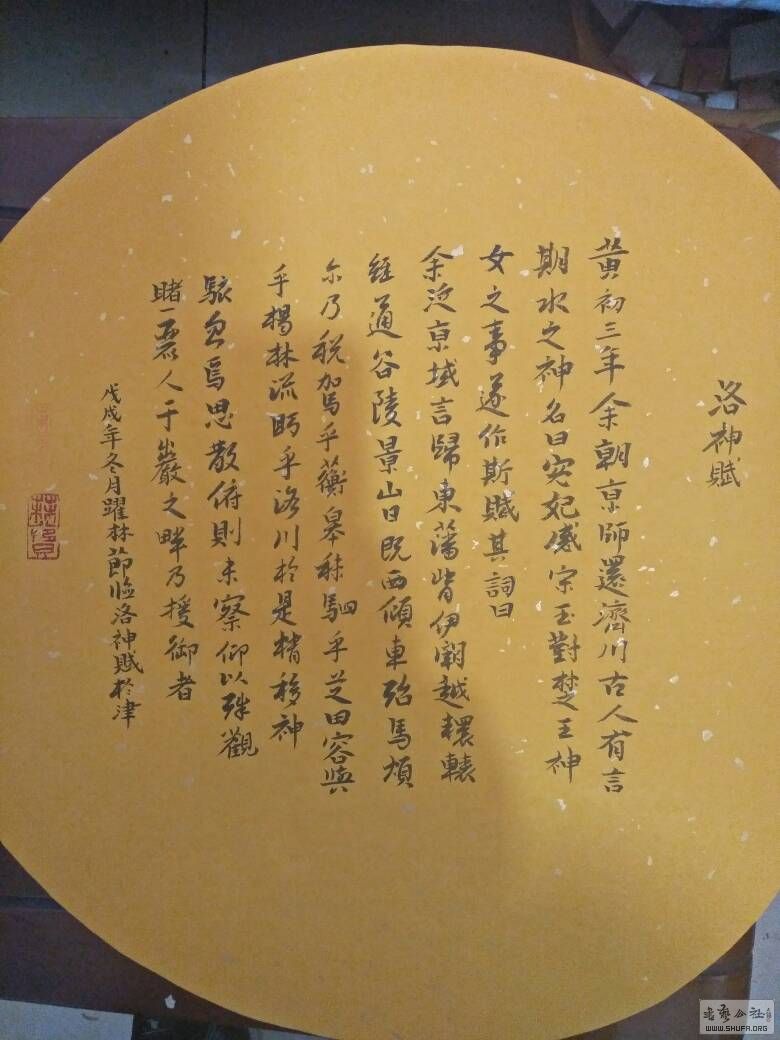 洛神賦
黃初三年余朝京師還濟川古人有言
期水之神名曰宓妃感宋玉對楚王神
女之事遂作斯賦其詞曰
余從京域言歸東藩背伊闕越轘轅
經通谷陵景山日既西傾車殆馬煩
尓乃稅駕乎蘅皋秣駟乎芝田容與
乎楊林流眄乎洛川於是精移神
駭忽焉思散俯則未察仰以殊觀
睹一麗人于巖之畔乃援御者
戊戌年冬月躍林節臨洛神賦於津
书艺公社
WWW.SHUFA.ORG